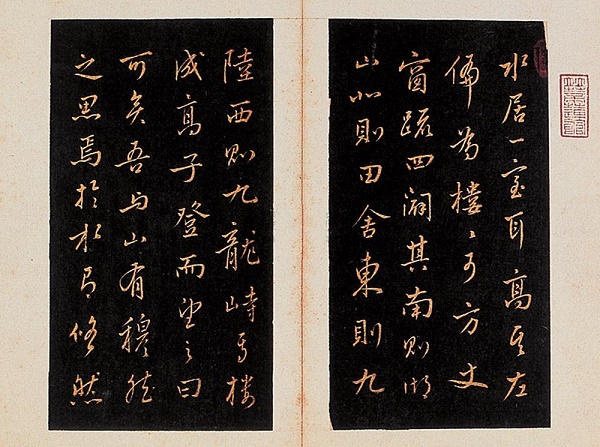 水居一室耳高其左
偏為樓〻可方丈
窗疏四闢其南則湖
山北則田舍東則九
陸西則九龍峙焉樓
成高子登而望之曰
可矣吾与山有穆然
之思焉於水有悠然